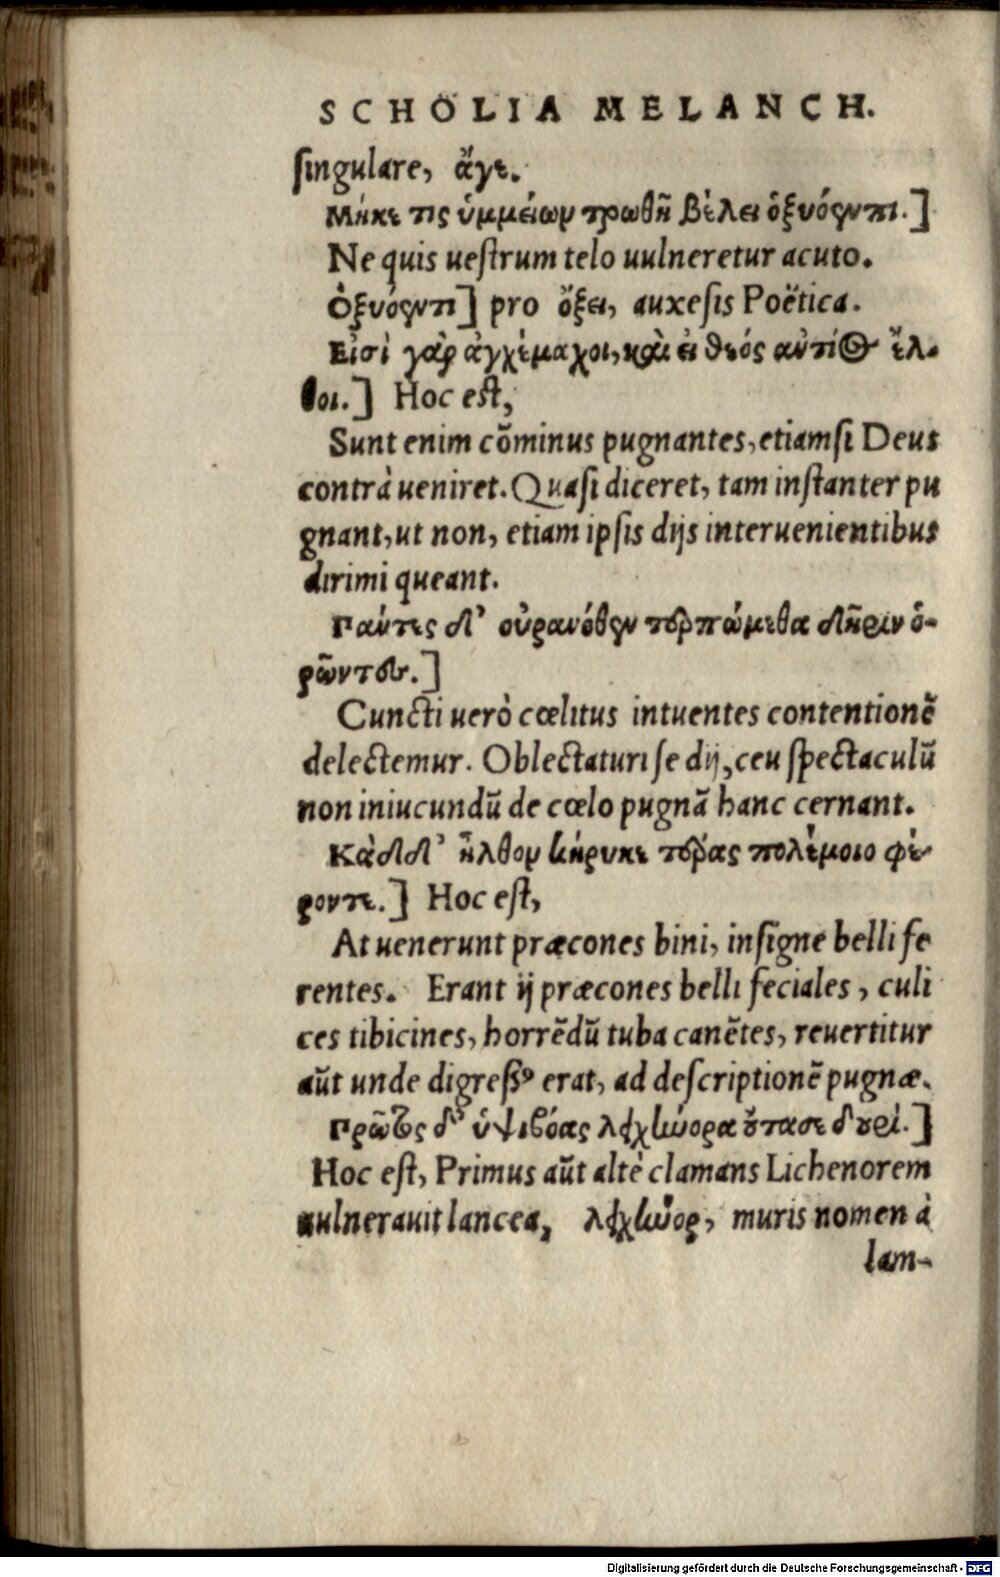 SCHOLIA MELANCH.
singulare, ἄγε.
Μήκε τις ὑμμέιωμ τρωθῆ βέλει ὀξυόεντι.]
Ne quis uestrum telo uulneretur acuto.
ὀξυόεντι] pro ὄξει, auxesis Poëtica.
Εἰσὶ γὰρ ἀγχέμαχοι, καὶ ἐι θεός ἀντίος ἔλ-
θοι.] Hoc est,
Sunt enim cõminus pugnantes, etiamsi Deus
contrà ueniret. Quasi diceret, tam instanter pu
gnant, ut non, etiam ipsis dijs interuenientibus
dirimi queant.
Πάντες δ' οὐρανόθεν τερπώμεθα δῆριν ὁ-
ρῶντες.]
Cuncti uerò cœlitus intuentes contentionẽ
delectemur. Oblectaturi se dij, ceu spectaculũ
non iniucundũ de cœlo pugnã hanc cernant.
Κὰδδ' ἦλθον κήρυκε τέρας πολέμοιο φέ-
ροντε.] Hoc est,
At uenerunt præcones bini, insigne belli fe
rentes. Erant ij præcones belli feciales, culi
ces tibicines, horrẽdũ tuba canẽtes, reuertitur
aũt unde digressꝰ erat, ad descriptionẽ pugnæ.
Πρῶτος δ' ὑψιβόας λειχήνορα οὔτασε δουρὶ.]
Hoc est, Primus aũt altè clamans Lichenorem
uulnerauit lancea, λειχήνορ, muris nomen à
lam-
Digitalisierung gefördert durch die Deutsche Forschungsgemeinschaft - DFG